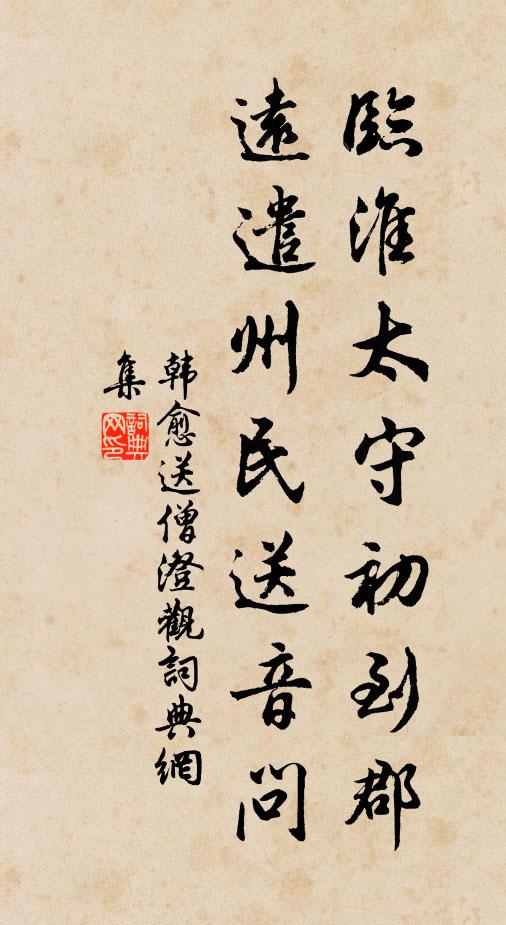 臨淮太守初到郡
遠遣州民送音問
韓愈送僧澄觀詞典網
集
詞典網印